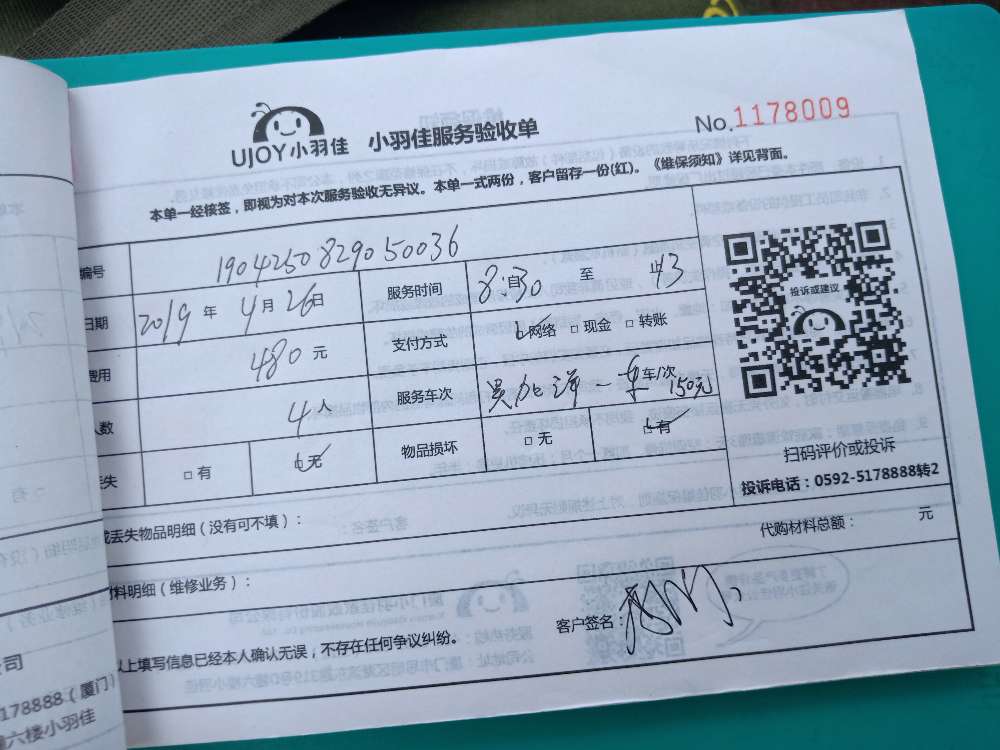 UJOY小羽佳 小羽佳服务验收单 No.1178009
本单一经核签，即视为对本次服务验收无异议。本单一式两份，客户留存一份(红)。《维保须知》详见背面。
编号 1904250829050036
日期 2019年4月26日 服务时间 8:30 至 43
费用 480元 支付方式 □网络 □现金 □转账
人数 4人 服务车次 一车 车/次 150元
丢失 □有 □无 物品损坏 □无 □有
投诉或建议
扫码评价或投诉
投诉电话：0592-5178888转2
或丢失物品明细（没有可不填）：
代购材料总额： 元
材料明细（维修业务）：
以上填写信息已经本人确认无误，不存在任何争议纠纷。
客户签名：
公司
178888（厦门）
六楼小羽佳